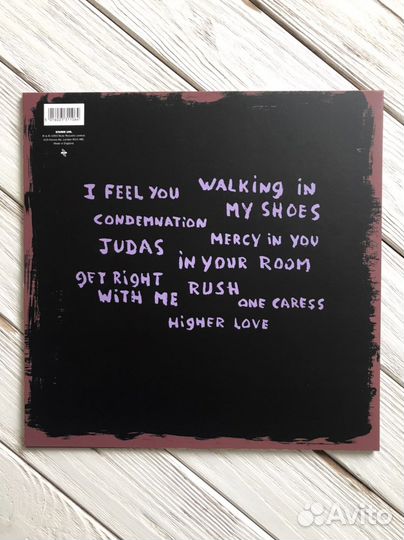 I FEEL YOU WALKING IN
MY SHOES
CONDEMNATION
JUDAS MERCY IN YOU
IN YOUR ROOM
GET RIGHT
WITH ME RUSH
ONE CARESS
HIGHER LOVE
Avito